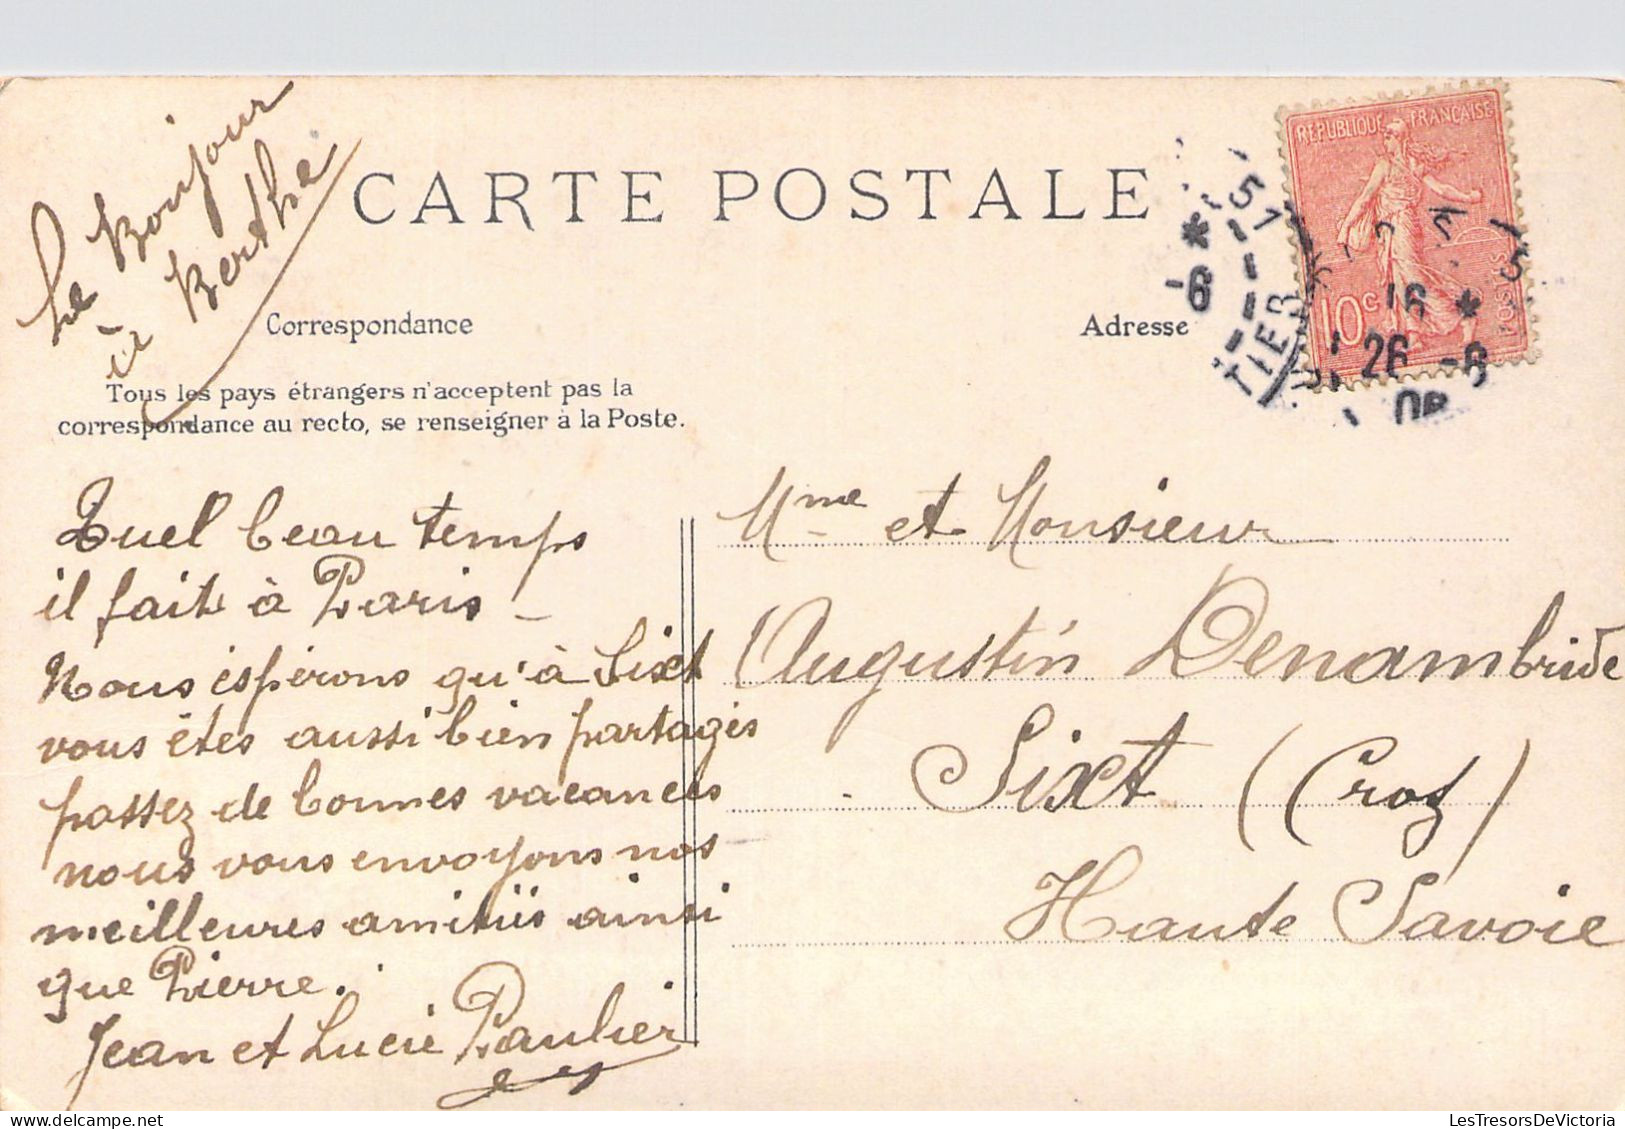 Le Bonjour
à Berthe
CARTE POSTALE
REPUBLIQUE FRANÇAISE
POSTES
10c
Correspondance
Adresse
Tous les pays étrangers n'acceptent pas la
correspondance au recto, se renseigner à la Poste.
51
* -6
TIER
16 *
26 -6
Quel beau temps
il fait à Paris -
Nous espérons qu'à Sixt
vous êtes aussi bien partagés
passez de bonnes vacances
nous vous envoyons nos
meilleures amitiés ainsi
que Pierre.
Jean et Lucie Paulier
Mme et Monsieur
Augustin Denambride
Sixt (Croz)
Haute Savoie
LesTresorsDeVictoria